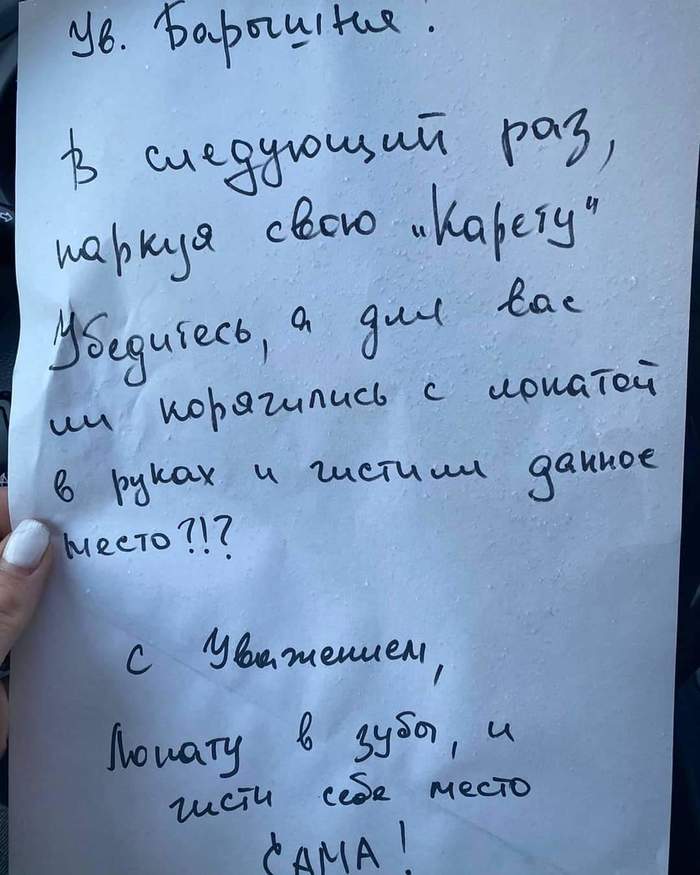 Ув. Барышня!
В следующий раз,
паркуя свою "Карету"
Убедитесь, а для вас
ли корячились с лопатой
в руках и чистили данное
место?!?
С Уважением,
Лопату в зубы, и
чисти себе место
САМА!